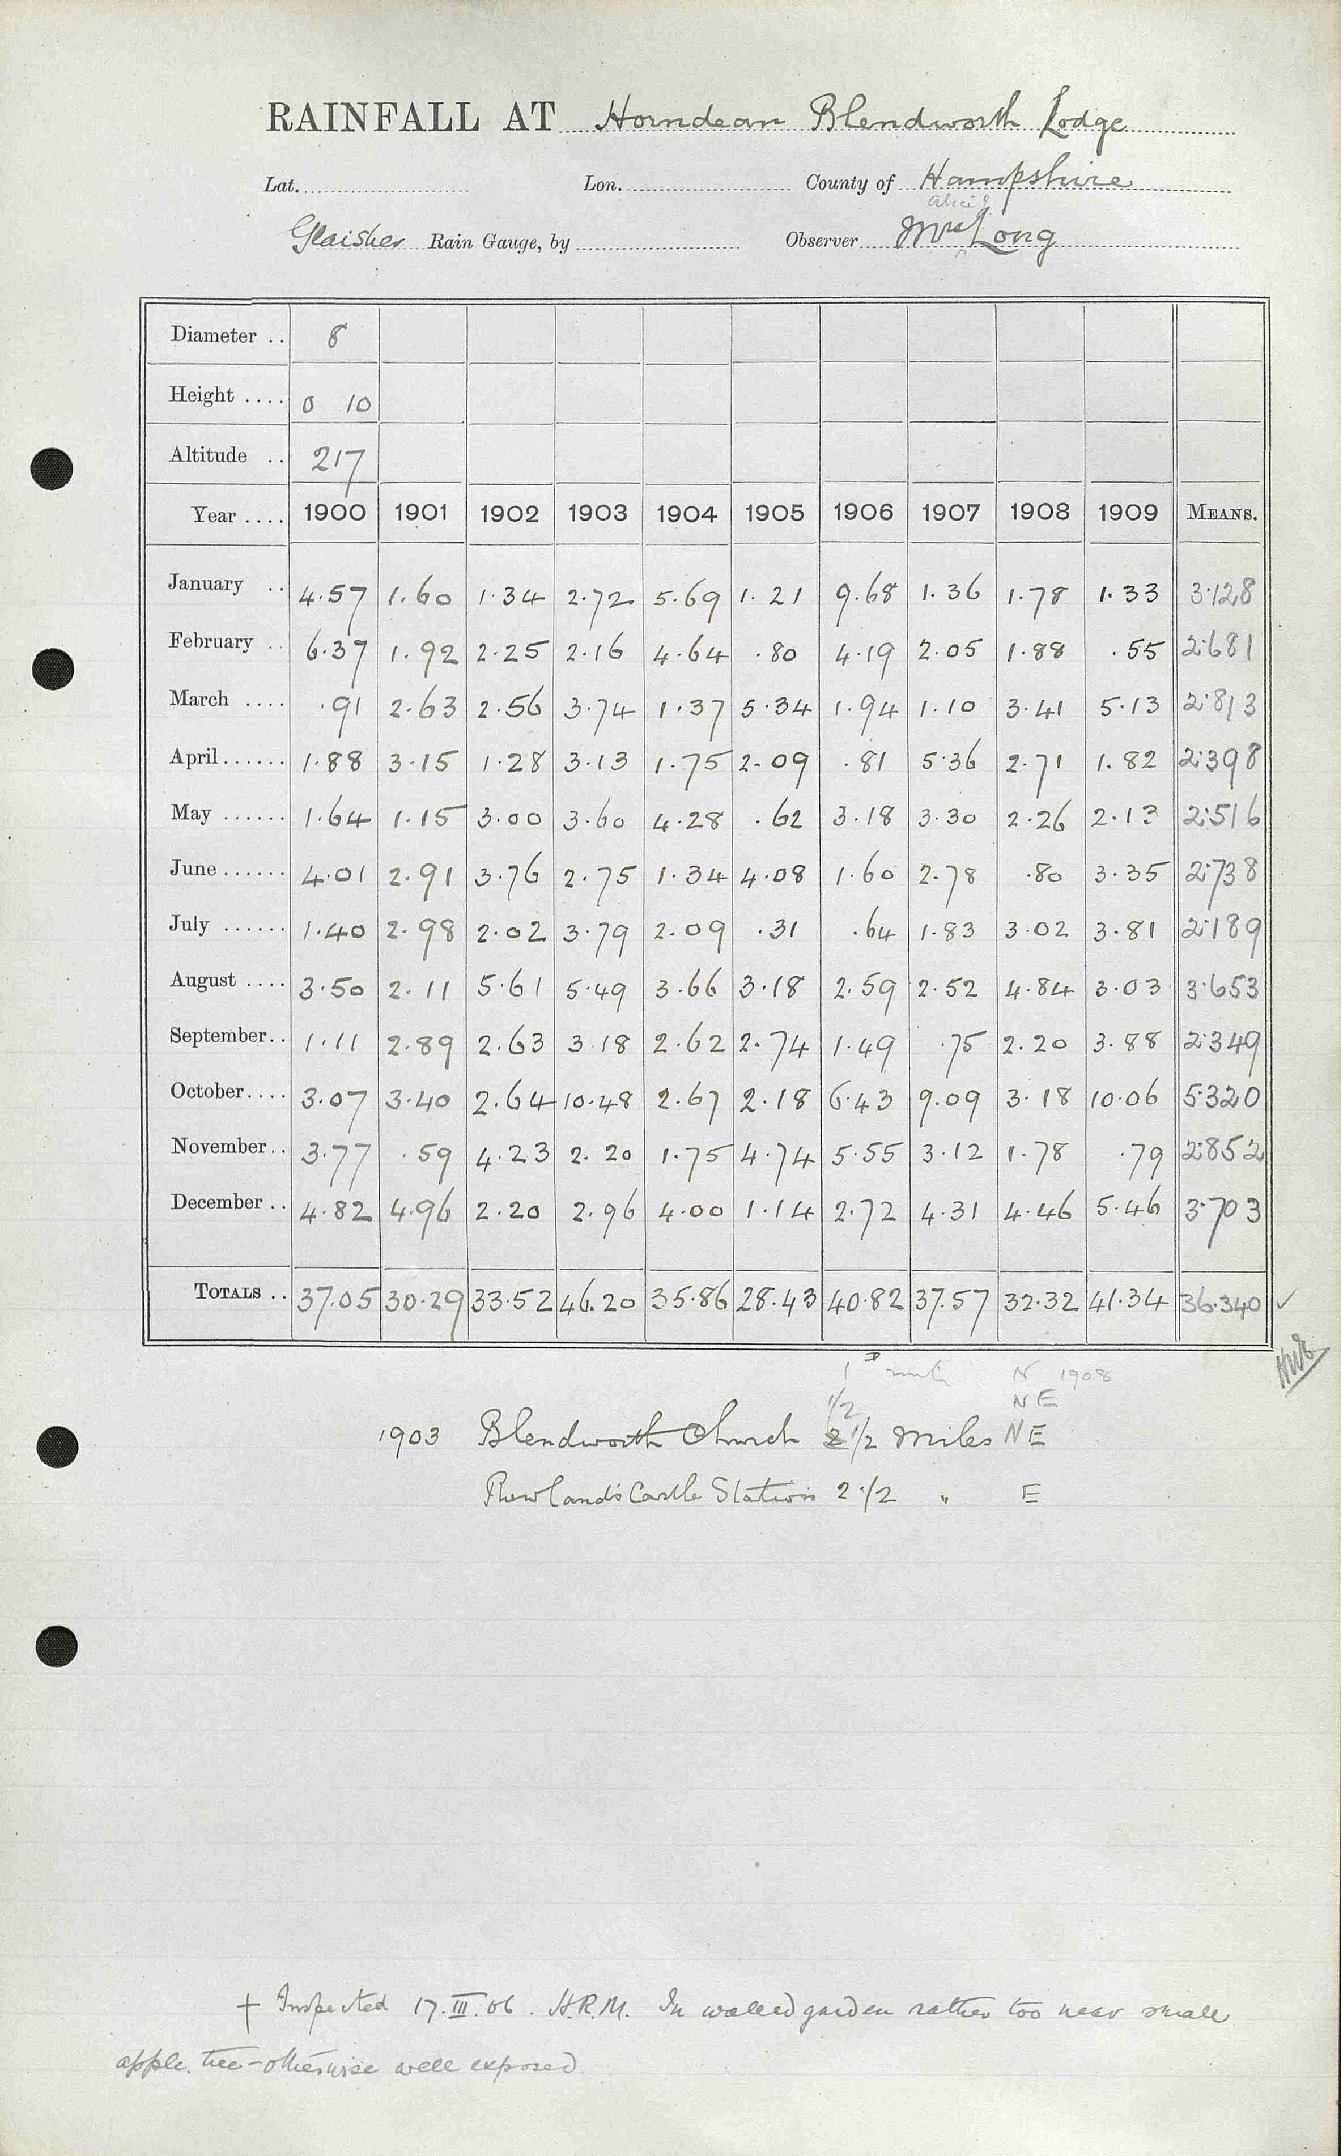 RAINFALL AT Horndean Blendworth Lodge
Lat. Lon. County of Hampshire
Glaisher Rain Gauge, by Observer Mrs Long
Diameter .. 8
Height .... 0 10
Altitude .. 217
Year .... 1900 1901 1902 1903 1904 1905 1906 1907 1908 1909 MEANS.
January .. 4.57 1.60 1.34 2.72 5.69 1.21 9.68 1.36 1.78 1.33 3.128
February .. 6.37 1.92 2.25 2.16 4.64 .80 4.19 2.05 1.88 .55 2.681
March .... .91 2.63 2.56 3.74 1.37 5.34 1.94 1.10 3.41 5.13 2.813
April...... 1.88 3.15 1.28 3.13 1.75 2.09 .81 5.36 2.71 1.82 2.398
May ...... 1.64 1.15 3.00 3.60 4.28 .62 3.18 3.30 2.26 2.13 2.516
June...... 4.01 2.91 3.76 2.75 1.34 4.08 1.60 2.78 .80 3.35 2.738
July ...... 1.40 2.98 2.02 3.79 2.09 .31 .64 1.83 3.02 3.81 2.189
August .... 3.50 2.11 5.61 5.49 3.66 3.18 2.59 2.52 4.84 3.03 3.653
September.. 1.11 2.89 2.63 3.18 2.62 2.74 1.49 .75 2.20 3.88 2.349
October.... 3.07 3.40 2.64 10.48 2.67 2.18 6.43 9.09 3.18 10.06 5.320
November.. 3.77 .59 4.23 2.20 1.75 4.74 5.55 3.12 1.78 .79 2.852
December .. 4.82 4.96 2.20 2.96 4.00 1.14 2.72 4.31 4.46 5.46 3.703
TOTALS .. 37.05 30.29 33.52 46.20 35.86 28.43 40.82 37.57 32.32 41.34 36.340 ✓
1 mile N 1908
1/2 NE
1903 Blendworth Church 2 1/2 miles NE
Rowland's Castle Station 2 1/2 " E
† Inspected 17.III.06. H.R.M. In walled garden rather too near small
apple tree - otherwise well exposed